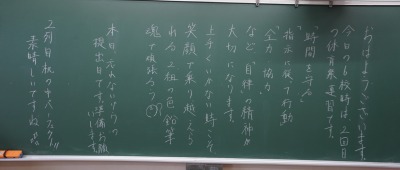 おはようございます。
今日の6校時は2回目
の体育祭練習です。
「時間を守る」
「指示に従って行動」
「全力・協力」
など“自律の精神”が
大切になります。
上手くいかない時こそ
笑顔で乗り越え
れる2組の色鉛筆
魂で頑張ろう
本日、
提出日です。準備お願
いします。
2列目
素晴らしいですね。